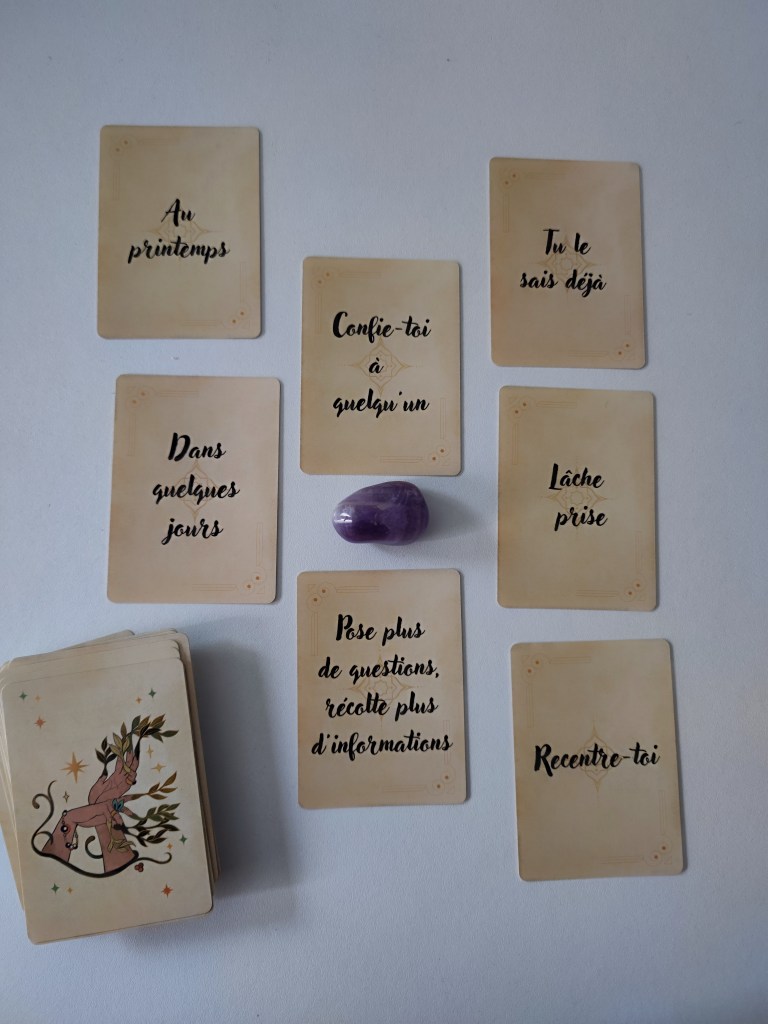 Au
printemps
Tu le
sais déjà
Confie-toi
à
quelqu'un
Dans
quelques
jours
Lâche
prise
Pose plus
de questions,
récolte plus
d'informations
Recentre-toi